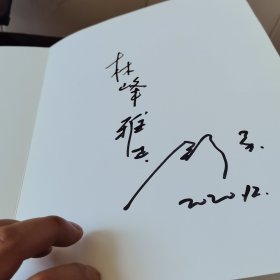 林峰雅正
2020.12.